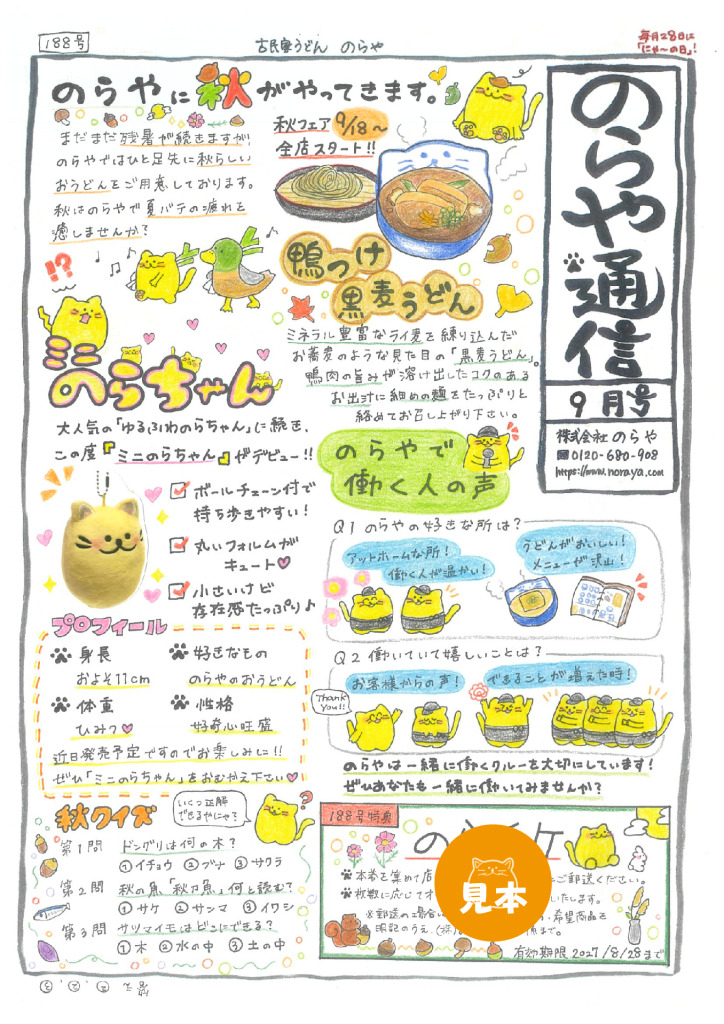 188号
古民家うどん のらや
毎月28日に
「にゃ〜の日」!
のらや通信
9月号
株式会社 のらや
☎0120-680-908
https://www.noraya.com
のらやに秋がやってきます。
まだまだ残暑が続きますが!
のらやではひと足先に秋らしい
おうどんをご用意しております。
秋はのらやで夏バテの疲れを
癒しませんか?
秋フェア9/18〜
全店スタート!!
鴨つけ
黒麦うどん
ミネラル豊富なライ麦を練り込んだ
お蕎麦のような見た目の「黒麦うどん」。
鴨肉の旨みが溶け出したコクのある
お出汁に細めの麺をたっぷりと
絡めてお召し上がり下さい。
!?
ミニ
のらちゃん
大人気の「ゆるふわのらちゃん」に続き、
この度『ミニのらちゃん』がデビュー!!
ボールチェーン付で
持ち歩きやすい!
丸いフォルムが
キュート♡
小さいけど
存在感たっぷり♪
プロフィール
身長
およそ11cm
好きなもの
のらやのおうどん
体重
ひみつ♡
性格
好奇心旺盛
近日発売予定ですのでお楽しみに!!
ぜひ「ミニのらちゃん」をおむかえ下さい♡
のらやで
働く人の声
Q1 のらやの好きな所は?
アットホームな所!
働く人が温かい!
うどんがおいしい!
メニューが沢山!
Q2 働いていて嬉しいことは?
Thank
You!!
お客様からの声!
できることが増えた時!
のらやは一緒に働くクルーを大切にしています!
ぜひあなたも一緒に働いてみませんか?
秋クイズ
いくつ正解
できるやにゃ?
第1問 ドングリは何の木?
①イチョウ ②ブナ ③サクラ
第2問 秋の魚「秋刀魚」何と読む?
①サケ ②サンマ ③イワシ
第3問 サツマイモはどこにできる?
①木 ②水の中 ③土の中
②, ②, ③
188号特典
のら
ケ
見本
本券を集めて店
ご郵送ください。
枚数に応じてオ
いたします。
※郵送の場合
、希望商品を
明記のうえ、(株)
まで。
有効期限 2027/8/28まで